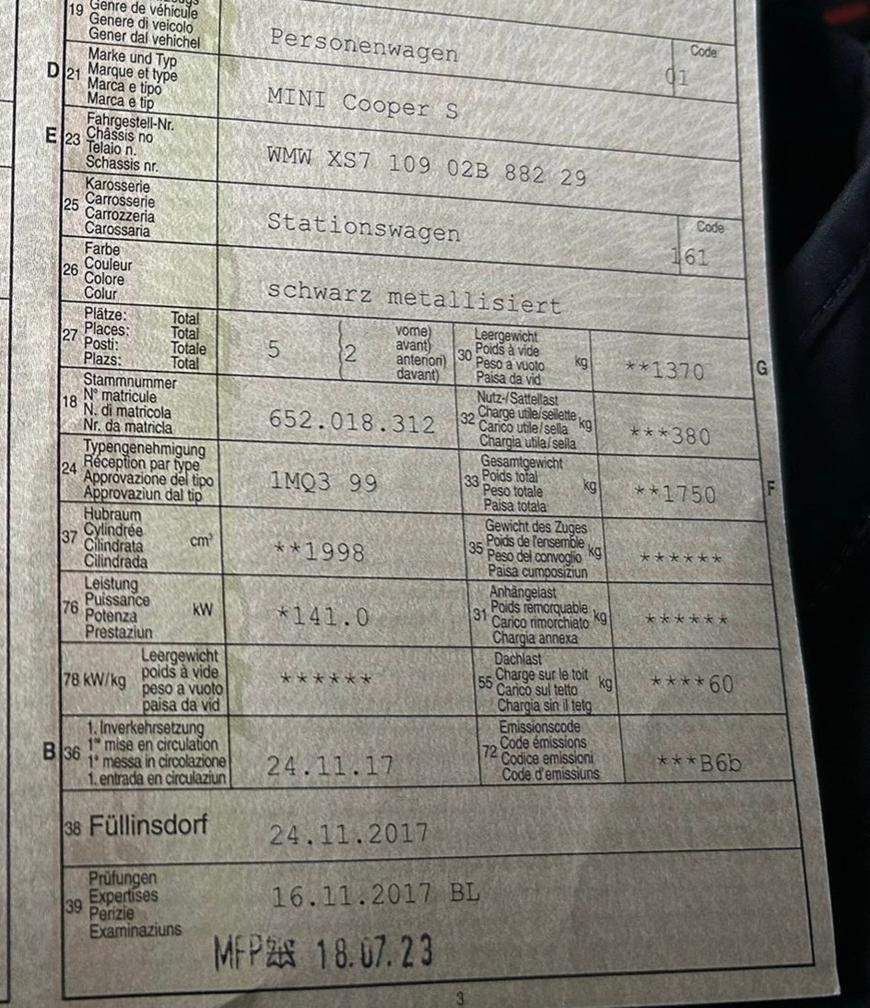 19 Genre de véhicule
Genere di veicolo
Gener dal vehichel
Personenwagen
Code
01
D 21 Marke und Typ
Marque et type
Marca e tipo
Marca e tip
MINI Cooper S
E 23 Fahrgestell-Nr.
Châssis no
Telaio n.
Schassis nr.
WMW XS7 109 02B 882 29
25 Karosserie
Carrosserie
Carrozzeria
Carossaria
Stationswagen
Code
161
26 Farbe
Couleur
Colore
Colur
schwarz metallisiert
27 Plätze: Total
Places: Total
Posti: Totale
Plazs: Total
5
2
vorne)
avant)
anteriori)
davant)
30 Leergewicht
Poids à vide
Peso a vuoto
Paisa da vid
kg
**1370
G
18 Stammnummer
N° matricule
N. di matricola
Nr. da matricla
652.018.312
32 Nutz-/Sattellast
Charge utile/sellette
Carico utile/sella
Chargia utila/sella
kg
***380
24 Typengenehmigung
Réception par type
Approvazione del tipo
Approvaziun dal tip
1MQ3 99
33 Gesamtgewicht
Poids total
Peso totale
Paisa totala
kg
**1750
F
37 Hubraum
Cylindrée
Cilindrata
Cilindrada
cm³
**1998
35 Gewicht des Zuges
Poids de l'ensemble
Peso del convoglio
Paisa cumposiziun
kg
******
76 Leistung
Puissance
Potenza
Prestaziun
kW
*141.0
31 Anhängelast
Poids remorquable
Carico rimorchiato
Chargia annexa
kg
******
78 kW/kg
Leergewicht
poids à vide
peso a vuoto
paisa da vid
******
55 Dachlast
Charge sur le toit
Carico sul tetto
Chargia sin il tetg
kg
****60
B 36 1. Inverkehrsetzung
1re mise en circulation
1a messa in circolazione
1. entrada en circulaziun
24.11.17
72 Emissionscode
Code émissions
Codice emissioni
Code d'emissiuns
***B6b
38 Füllinsdorf
24.11.2017
39 Prüfungen
Expertises
Perizie
Examinaziuns
16.11.2017 BL
MFP 18.07.23
3